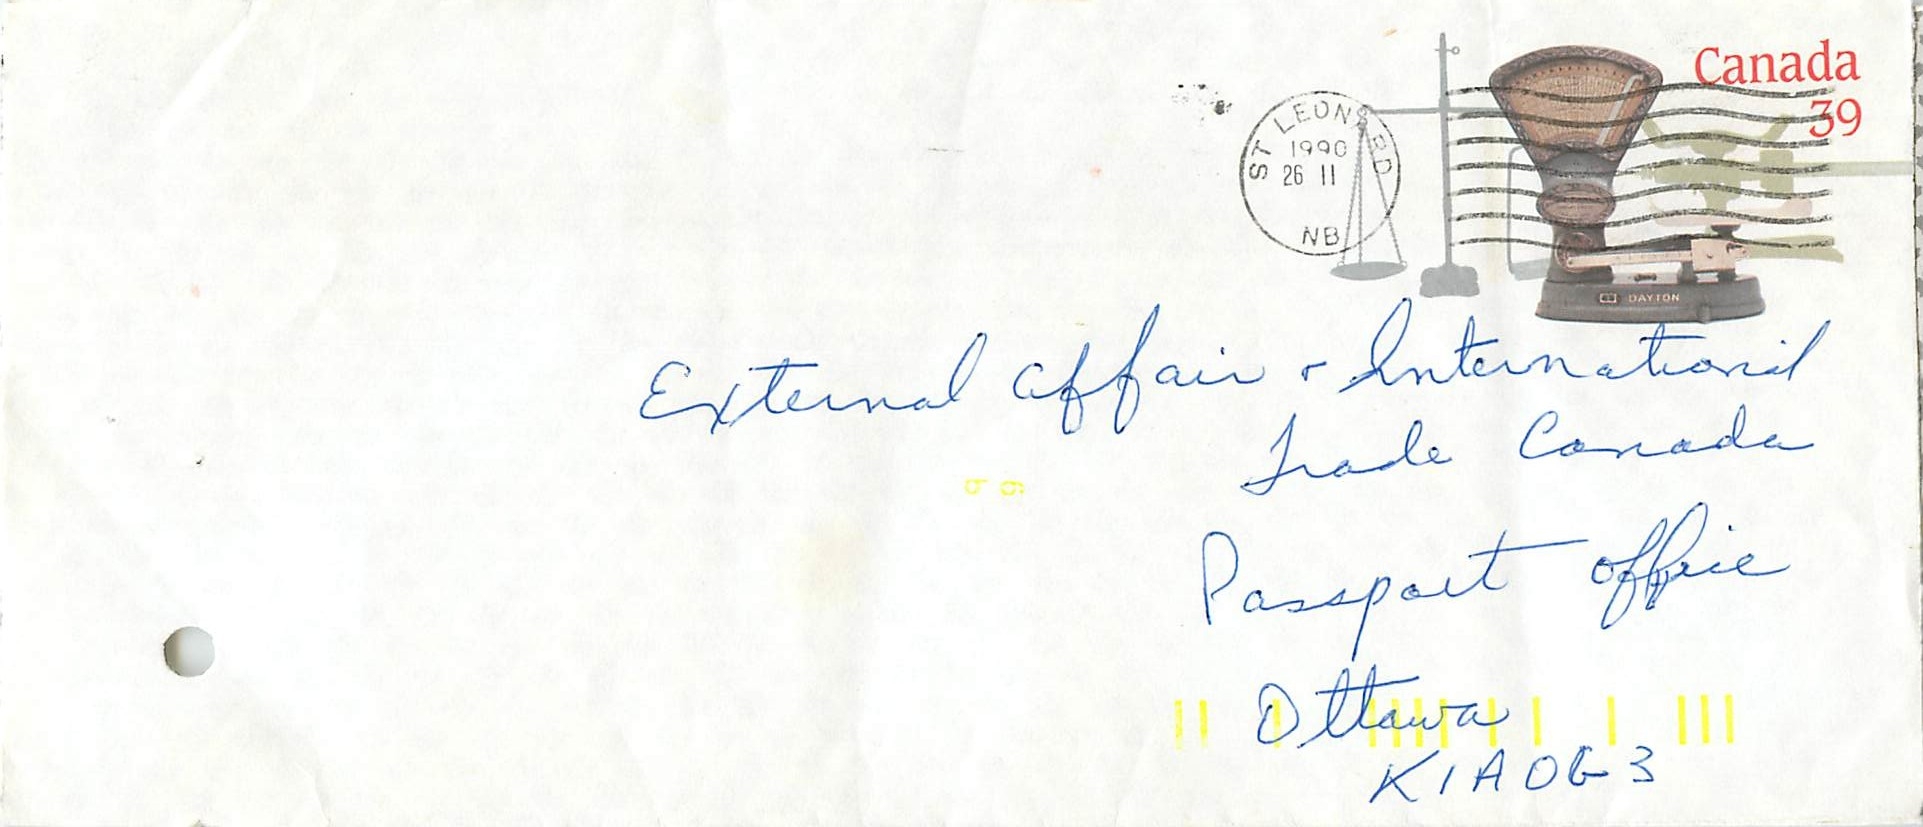 Canada
39
ST LEONARD
1990
26 11
NB
DAYTON
External affair & International
Trade Canada
Passport office
Ottawa
K1A0G3